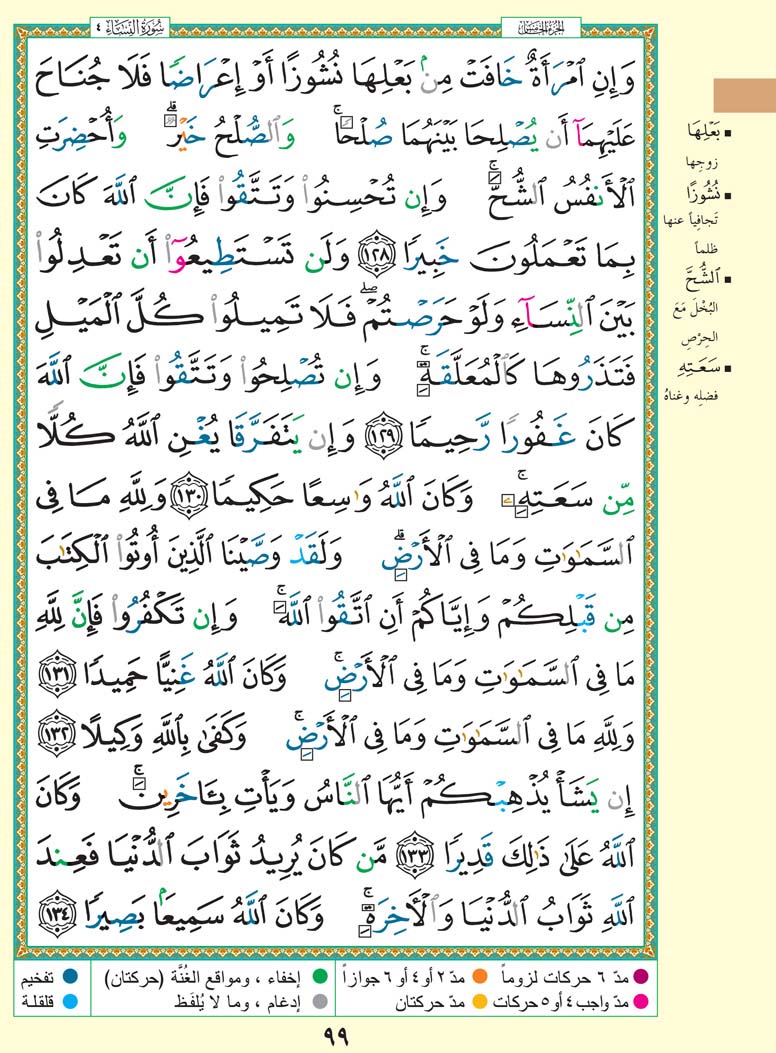 سُورَةُ النِّسَاءِ ٤
الجُزْءُ الخَامِسُ
وَإِنِ ٱمْرَأَةٌ خَافَتْ مِنۢ بَعْلِهَا نُشُوزًا أَوْ إِعْرَاضًا فَلَا جُنَاحَ
عَلَيْهِمَآ أَن يُصْلِحَا بَيْنَهُمَا صُلْحًاۚ وَٱلصُّلْحُ خَيْرٌۗ وَأُحْضِرَتِ
ٱلْأَنفُسُ ٱلشُّحَّۚ وَإِن تُحْسِنُوا۟ وَتَتَّقُوا۟ فَإِنَّ ٱللَّهَ كَانَ
بِمَا تَعْمَلُونَ خَبِيرًا ١٢٨ وَلَن تَسْتَطِيعُوٓا۟ أَن تَعْدِلُوا۟
بَيْنَ ٱلنِّسَآءِ وَلَوْ حَرَصْتُمْۖ فَلَا تَمِيلُوا۟ كُلَّ ٱلْمَيْلِ
فَتَذَرُوهَا كَٱلْمُعَلَّقَةِۚ وَإِن تُصْلِحُوا۟ وَتَتَّقُوا۟ فَإِنَّ ٱللَّهَ
كَانَ غَفُورًا رَّحِيمًا ١٢٩ وَإِن يَتَفَرَّقَا يُغْنِ ٱللَّهُ كُلًّا
مِّن سَعَتِهِۦۚ وَكَانَ ٱللَّهُ وَٰسِعًا حَكِيمًا ١٣٠ وَلِلَّهِ مَا فِى
ٱلسَّمَٰوَٰتِ وَمَا فِى ٱلْأَرْضِۗ وَلَقَدْ وَصَّيْنَا ٱلَّذِينَ أُوتُوا۟ ٱلْكِتَٰبَ
مِن قَبْلِكُمْ وَإِيَّاكُمْ أَنِ ٱتَّقُوا۟ ٱللَّهَۚ وَإِن تَكْفُرُوا۟ فَإِنَّ لِلَّهِ
مَا فِى ٱلسَّمَٰوَٰتِ وَمَا فِى ٱلْأَرْضِۚ وَكَانَ ٱللَّهُ غَنِيًّا حَمِيدًا ١٣١
وَلِلَّهِ مَا فِى ٱلسَّمَٰوَٰتِ وَمَا فِى ٱلْأَرْضِۚ وَكَفَىٰ بِٱللَّهِ وَكِيلًا ١٣٢
إِن يَشَأْ يُذْهِبْكُمْ أَيُّهَا ٱلنَّاسُ وَيَأْتِ بِـَٔاخَرِينَۚ وَكَانَ
ٱللَّهُ عَلَىٰ ذَٰلِكَ قَدِيرًا ١٣٣ مَّن كَانَ يُرِيدُ ثَوَابَ ٱلدُّنْيَا فَعِندَ
ٱللَّهِ ثَوَابُ ٱلدُّنْيَا وَٱلْأَخِرَةِۚ وَكَانَ ٱللَّهُ سَمِيعًۢا بَصِيرًا ١٣٤
▪ بَعْلِهَا
زوجِها
▪ نُشُوزًا
تَجافِياً عنها
ظلماً
▪ ٱلشُّحَّ
البُخْلَ مَعَ
الحِرْصِ
▪ سَعَتِهِ
فضلِه وغناهُ
مدّ ٦ حركات لزوماً ● مدّ ٢ أو ٤ أو ٦ جوازاً ● إخفاء ، ومواقع الغُنَّة (حركتان) ● تفخيم
مدّ واجب ٤ أو ٥ حركات ● مدّ حركتان ● إدغام ، وما لا يُلفَظ ● قلقلة
٩٩